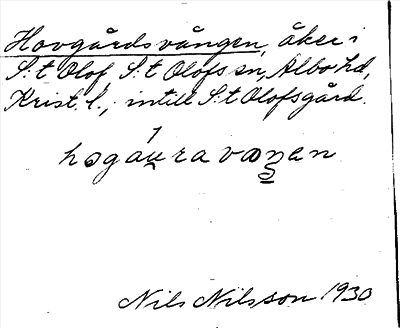 Hovgårdsvången, åker i
S:t Olof S:t Olofs sn, Albo hd,
Krist. l., intill S:t Olofsgård.
hogáu̯ravaŋ̳en
Nils Nilsson 1930